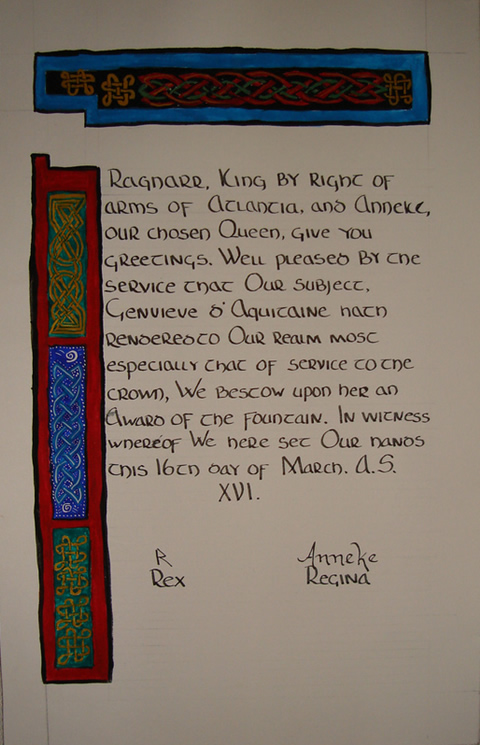 Ragnarr, King by right of
arms of Atlantia, and Anneke,
our chosen Queen, give you
greetings. Well pleased by the
service that Our subject,
Genvieve d'Aquitaine hath
rendered to Our Realm most
especially that of service to the
crown, We bestow upon her an
Award of the Fountain. In witness
whereof We here set Our hands
this 16th day of March. A.S.
XVI.
R Anneke
Rex Regina